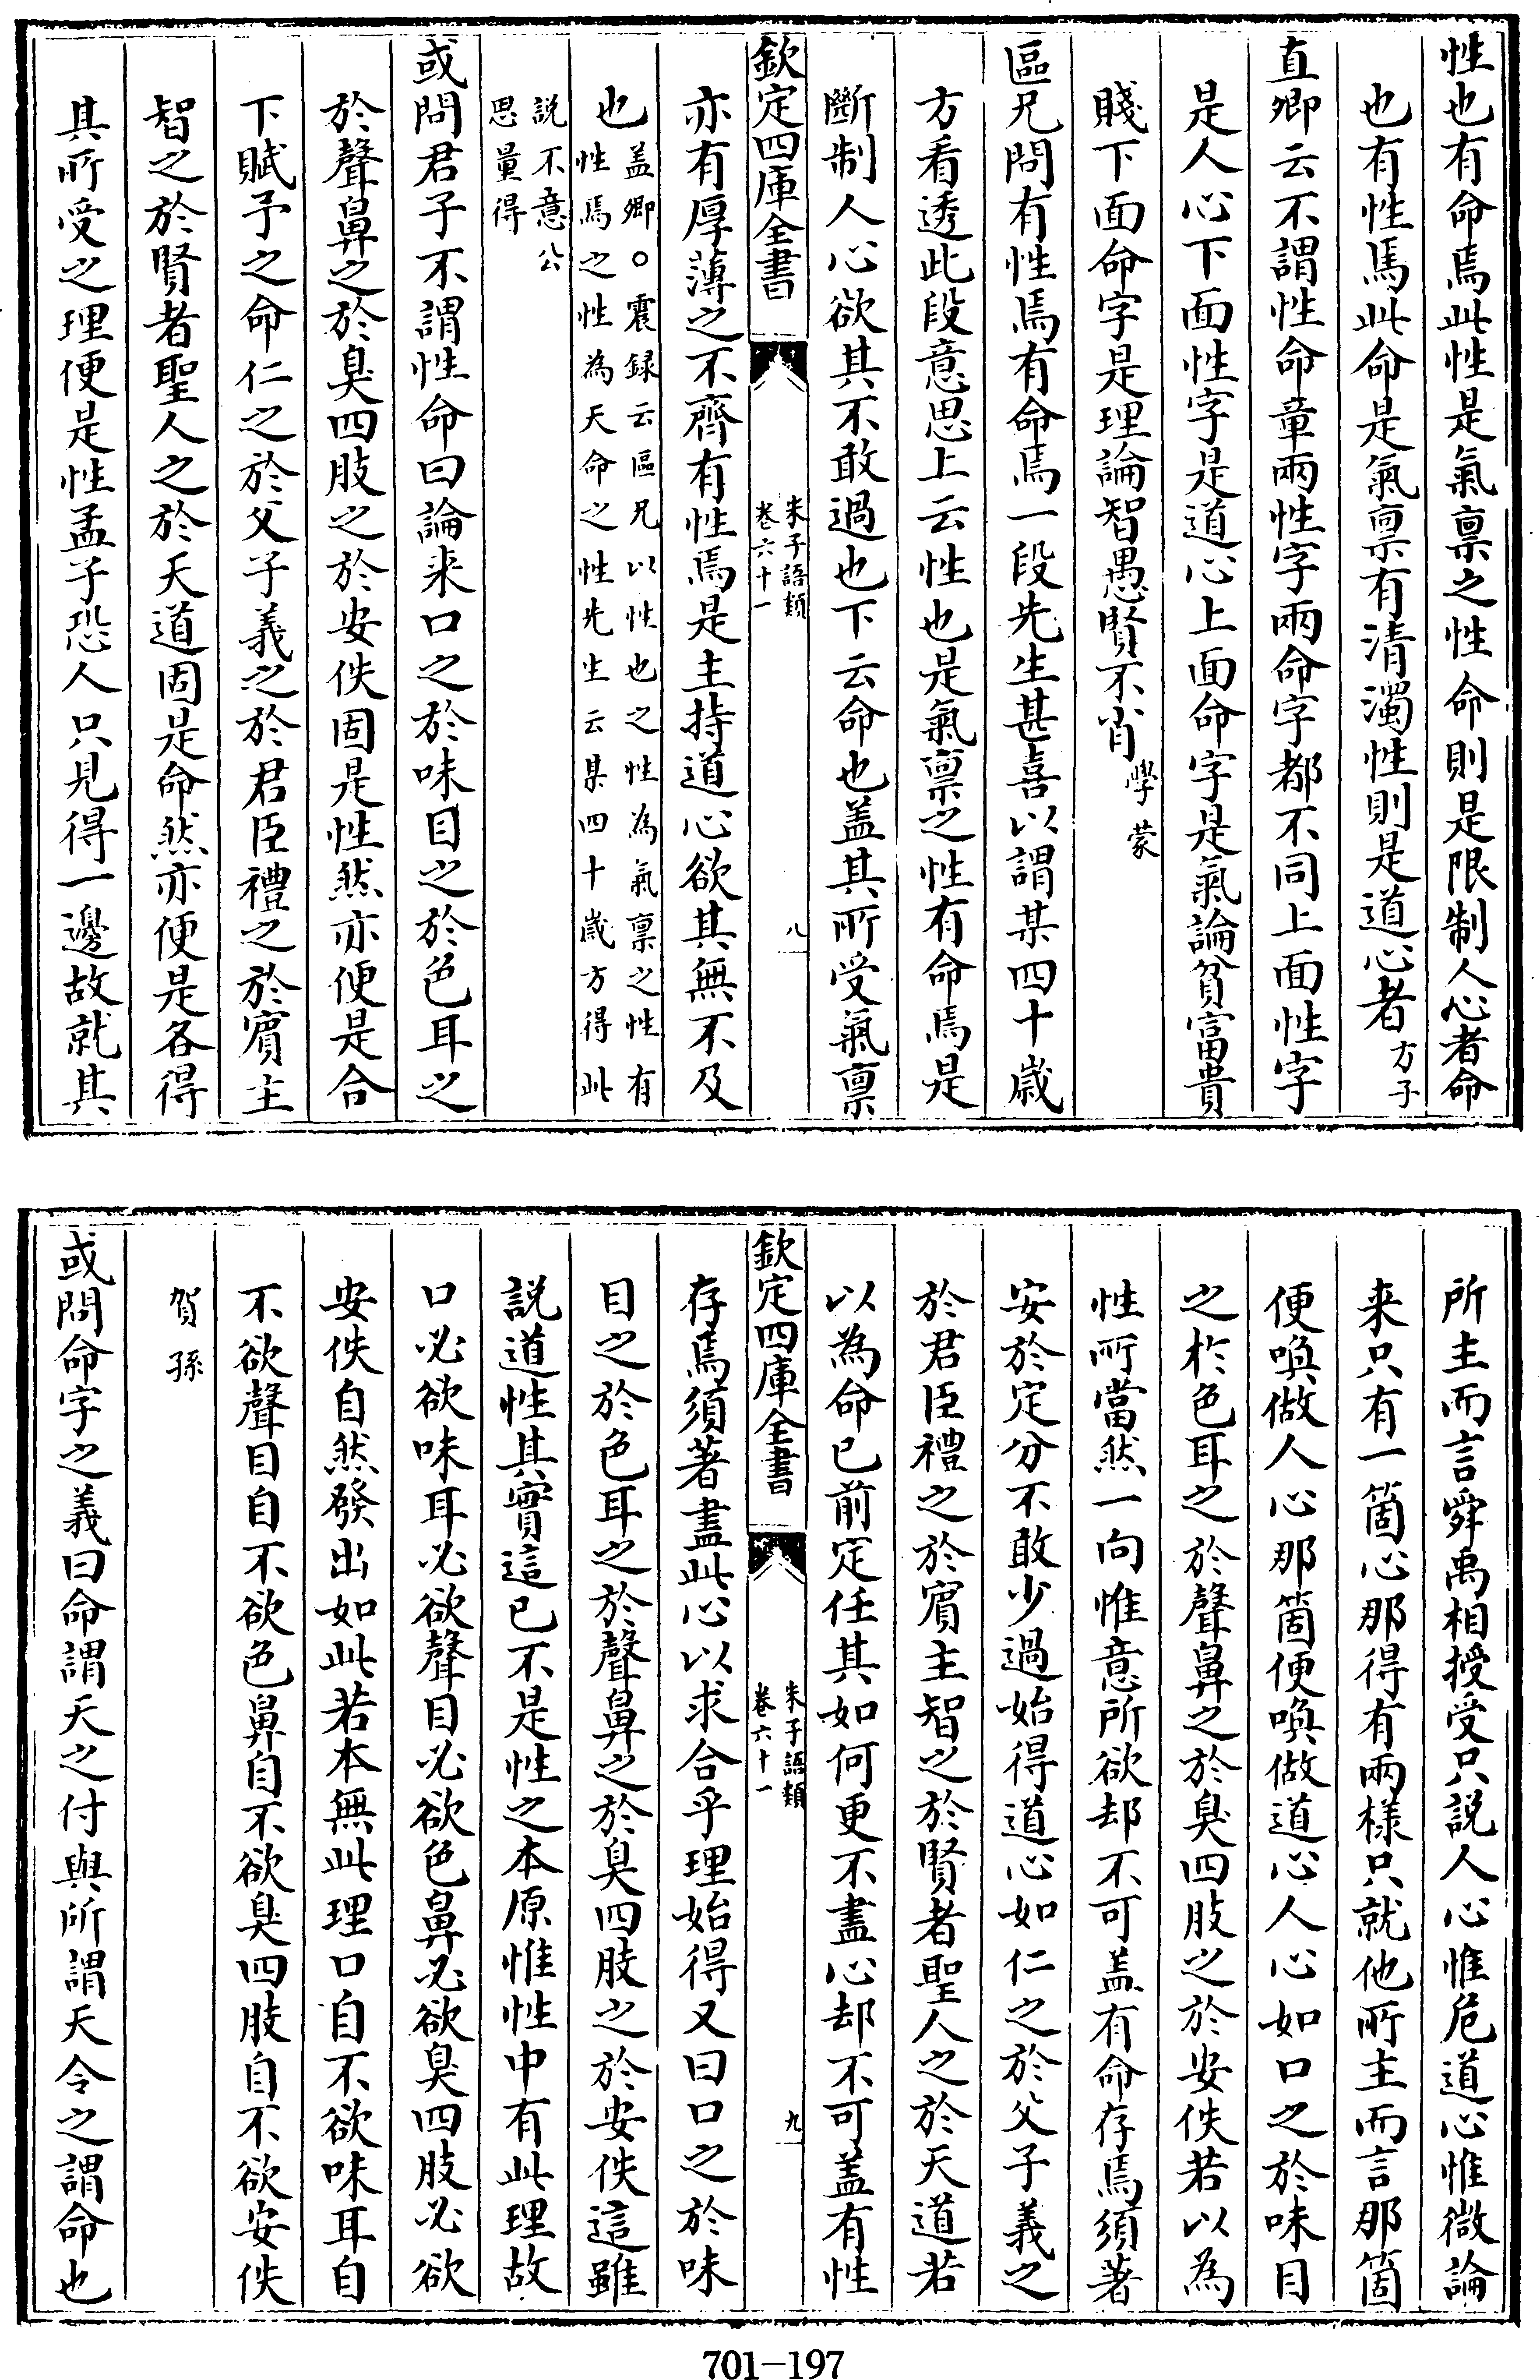 性也有命焉此性是氣禀之性命則是限制人心者命
也有性焉此命是氣禀有清濁性則是道心者方子
直卿云不謂性命章兩性字兩命字都不同上面性字
是人心下面性字是道心上面命字是氣論貧富貴
賤下面命字是理論智愚賢不肖學蒙
區兄問有性焉有命焉一段先生甚喜以謂某四十歲
方看透此段意思上云性也是氣禀之性有命焉是
斷制人心欲其不敢過也下云命也盖其所受氣禀
欽定四庫全書
朱子語類
卷六十一
八
亦有厚薄之不齊有性焉是主持道心欲其無不及
也盖卿○震録云區兄以性也之性為氣禀之性有
性焉之性為天命之性先生云某四十歲方得此
説不意公
思量得
或問君子不謂性命曰論来口之於味目之於色耳之
於聲鼻之於臭四肢之於安佚固是性然亦便是合
下賦予之命仁之於父子義之於君臣禮之於賔主
智之於賢者聖人之於天道固是命然亦便是各得
其所受之理便是性孟子恐人只見得一邊故就其
所主而言舜禹相授受只説人心惟危道心惟微論
来只有一箇心那得有兩様只就他所主而言那箇
便喚做人心那箇便喚做道心人心如口之於味目
之於色耳之於聲鼻之於臭四肢之於安佚若以為
性所當然一向惟意所欲却不可盖有命存焉須著
安於定分不敢少過始得道心如仁之於父子義之
於君臣禮之於賔主智之於賢者聖人之於天道若
以為命已前定任其如何更不盡心却不可盖有性
欽定四庫全書
朱子語類
卷六十一
九
存焉須著盡此心以求合乎理始得又曰口之於味
目之於色耳之於聲鼻之於臭四肢之於安佚這雖
説道性其實這已不是性之本原惟性中有此理故
口必欲味耳必欲聲目必欲色鼻必欲臭四肢必欲
安佚自然發出如此若本無此理口自不欲味耳自
不欲聲目自不欲色鼻自不欲臭四肢自不欲安佚
賀孫
或問命字之義曰命謂天之付與所謂天令之謂命也
701-197